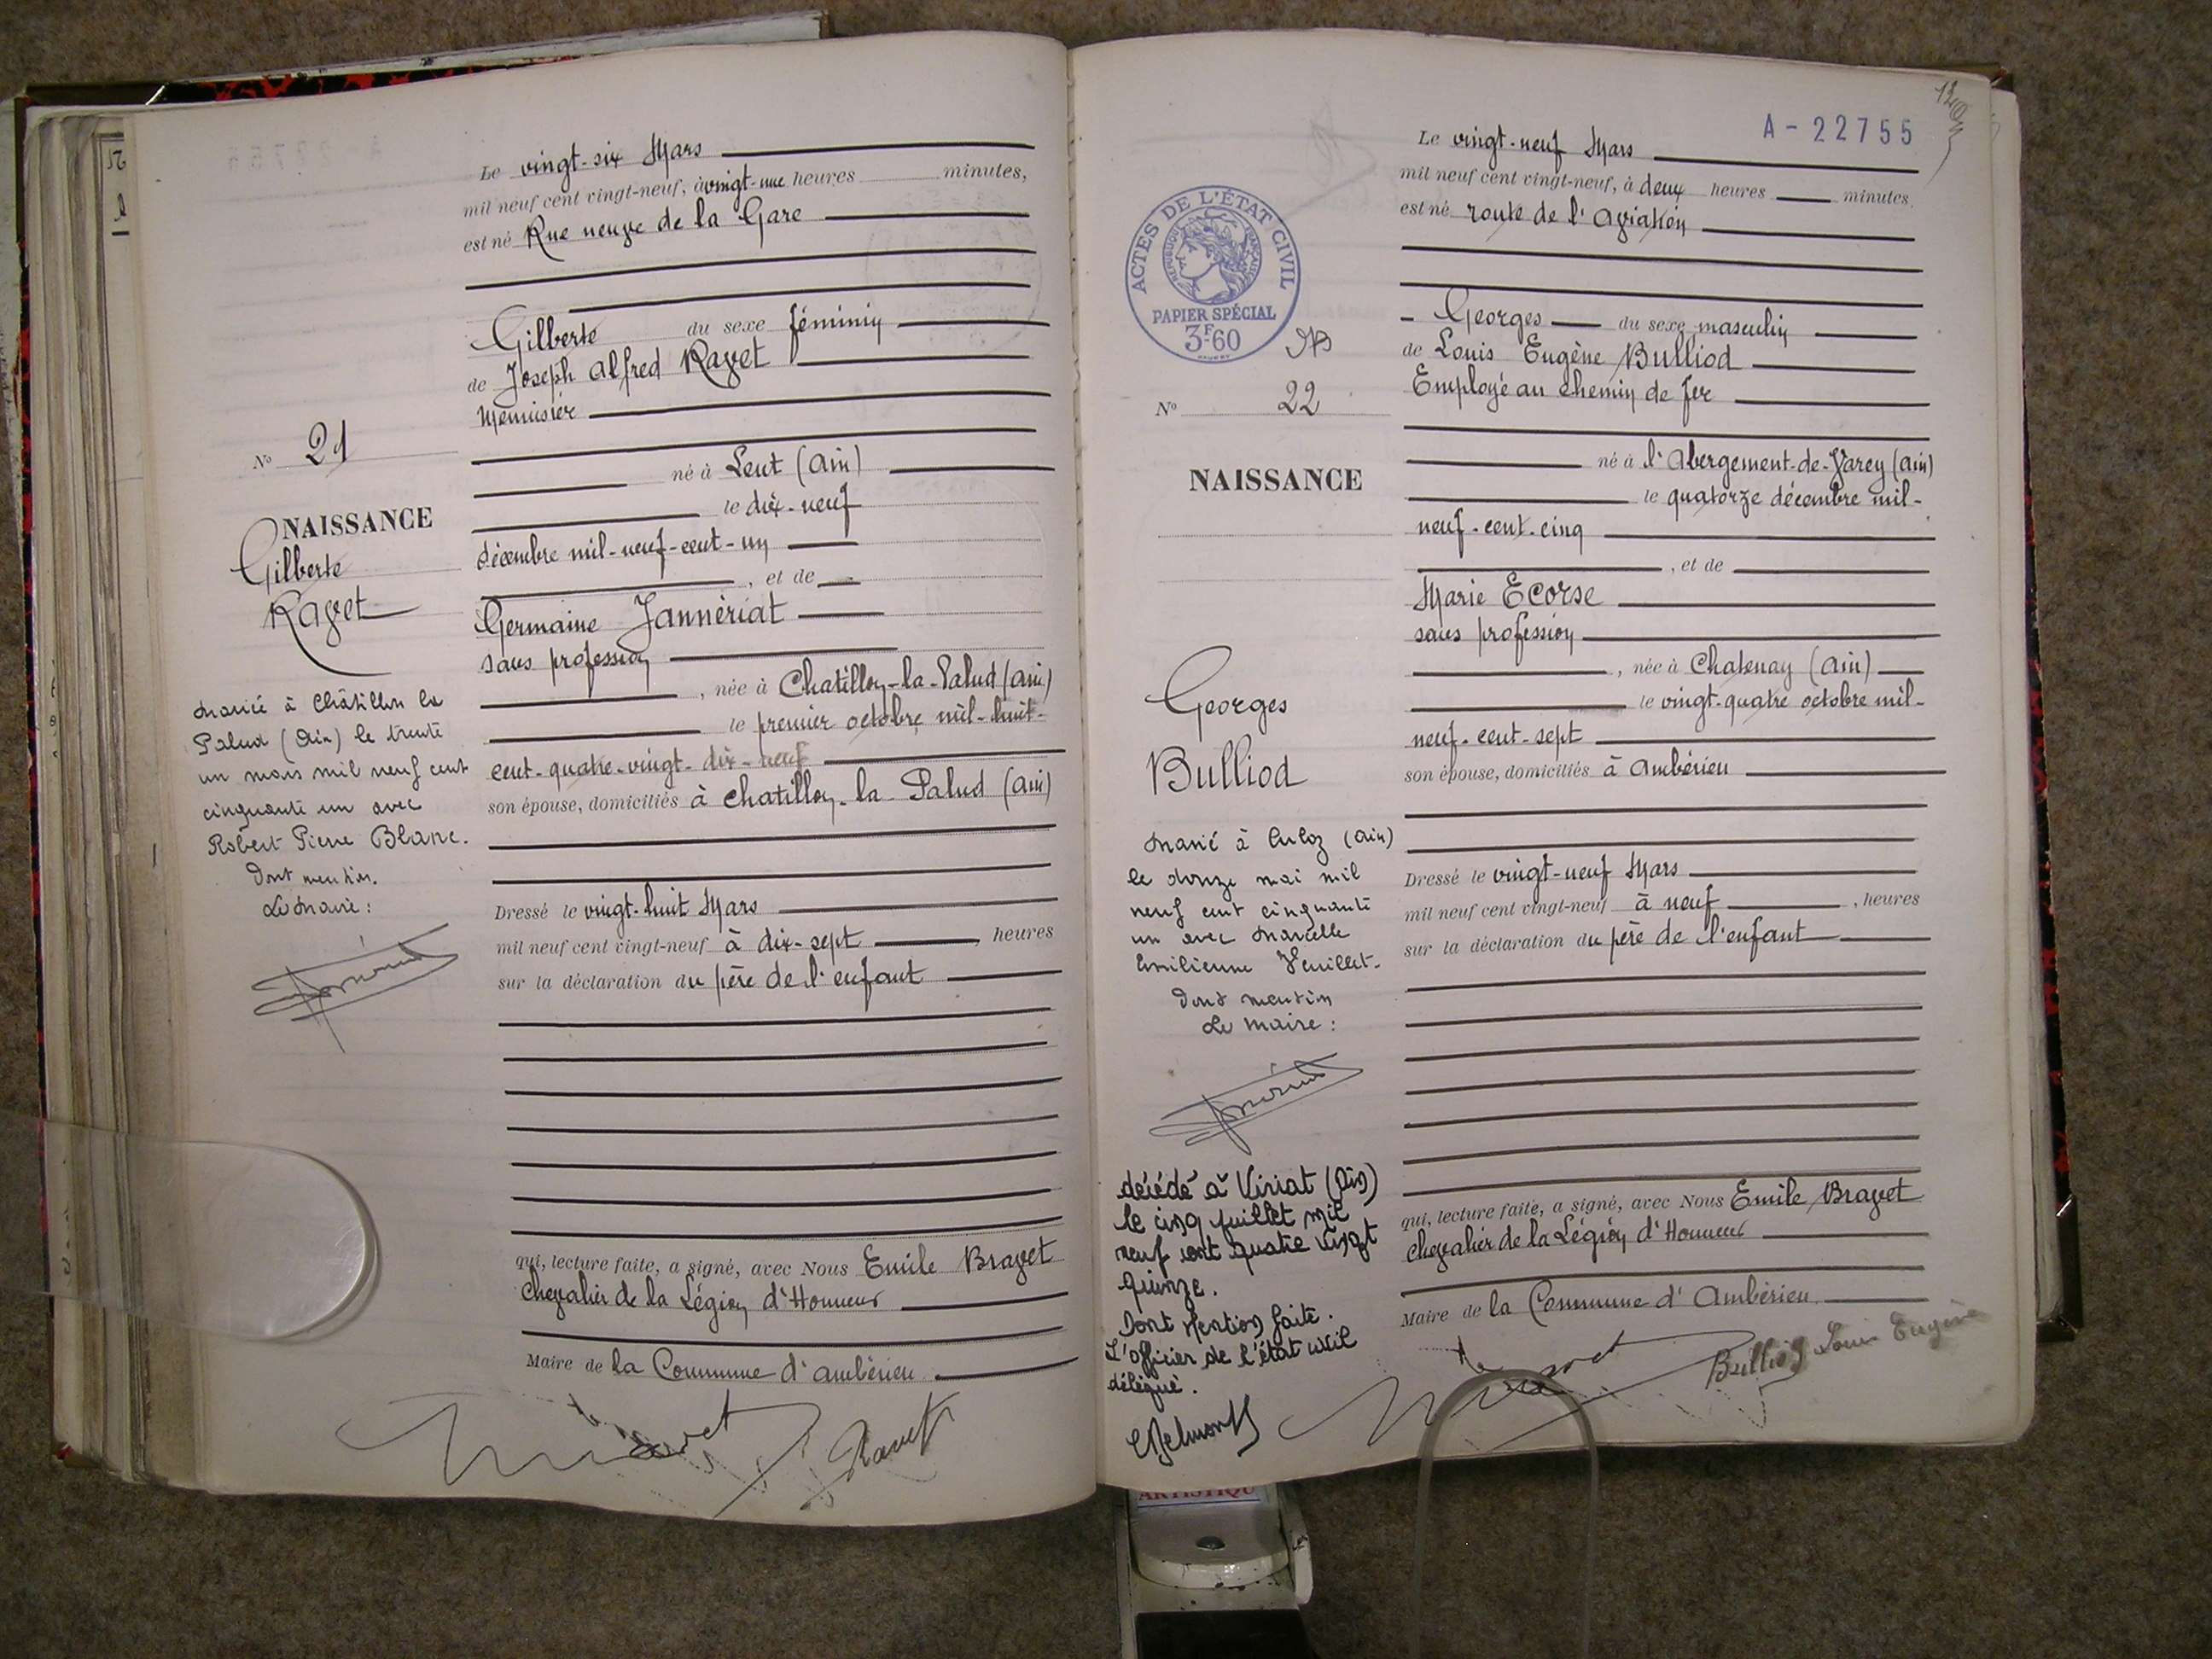 Le vingt-six Mars
mil neuf cent vingt-neuf, à vingt-une heures minutes,
est né Rue neuve de la Gare
Gilberte du sexe féminin
de Joseph Alfred Ravet
Menuisier
né à Lent (Ain)
le dix-neuf
décembre mil-neuf-cent-un
, et de
Germaine Jannériat
sans profession
, née à Chatillon-la-Palud (Ain)
le premier octobre mil-huit-
cent-quatre-vingt-dix-neuf
son épouse, domiciliés à Chatillon-la-Palud (Ain)
Dressé le vingt-huit Mars
mil neuf cent vingt-neuf à dix-sept, heures
sur la déclaration du père de l'enfant
qui, lecture faite, a signé, avec Nous Emile Bravet
Chevalier de la Légion d'Honneur
Maire de la Commune d'Ambérieu
Ravet
No 21
NAISSANCE
Gilberte
Ravet
Marié à Châtillon la
Palud (Ain) le trente
un mars mil neuf cent
cinquante un avec
Robert Pierre Blanc.
Dont mention.
Le Maire :
A-22755
Le vingt-neuf Mars
mil neuf cent vingt-neuf, à deux heures minutes,
est né route de l'Aviation
Georges du sexe masculin
de Louis Eugène Bulliod
Employé au chemin de fer
né à l'Abergement-de-Varey (Ain)
le quatorze décembre mil-
neuf-cent-cinq
, et de
Marie Ecorse
sans profession
, née à Chatenay (Ain)
le vingt-quatre octobre mil-
neuf-cent-sept
son épouse, domiciliés à Ambérieu
Dressé le vingt-neuf Mars
mil neuf cent vingt-neuf à neuf, heures
sur la déclaration du père de l'enfant
qui, lecture faite, a signé, avec Nous Emile Bravet
Chevalier de la Légion d'Honneur
Maire de la Commune d'Ambérieu
Bulliod Louis Eugène
ACTES DE L'ÉTAT CIVIL
RÉPUBLIQUE FRANÇAISE
PAPIER SPÉCIAL
3F60
No 22
NAISSANCE
Georges
Bulliod
Marié à Culoz (Ain)
le douze mai mil
neuf cent cinquante
un avec Marcelle
Emilienne Heuillet.
Dont mention
Le Maire :
décédé à Viriat (Ain)
le cinq juillet mil
neuf cent quatre vingt
quinze.
Dont Mention faite.
L'officier de l'état civil
délégué.
ARTISTIQU